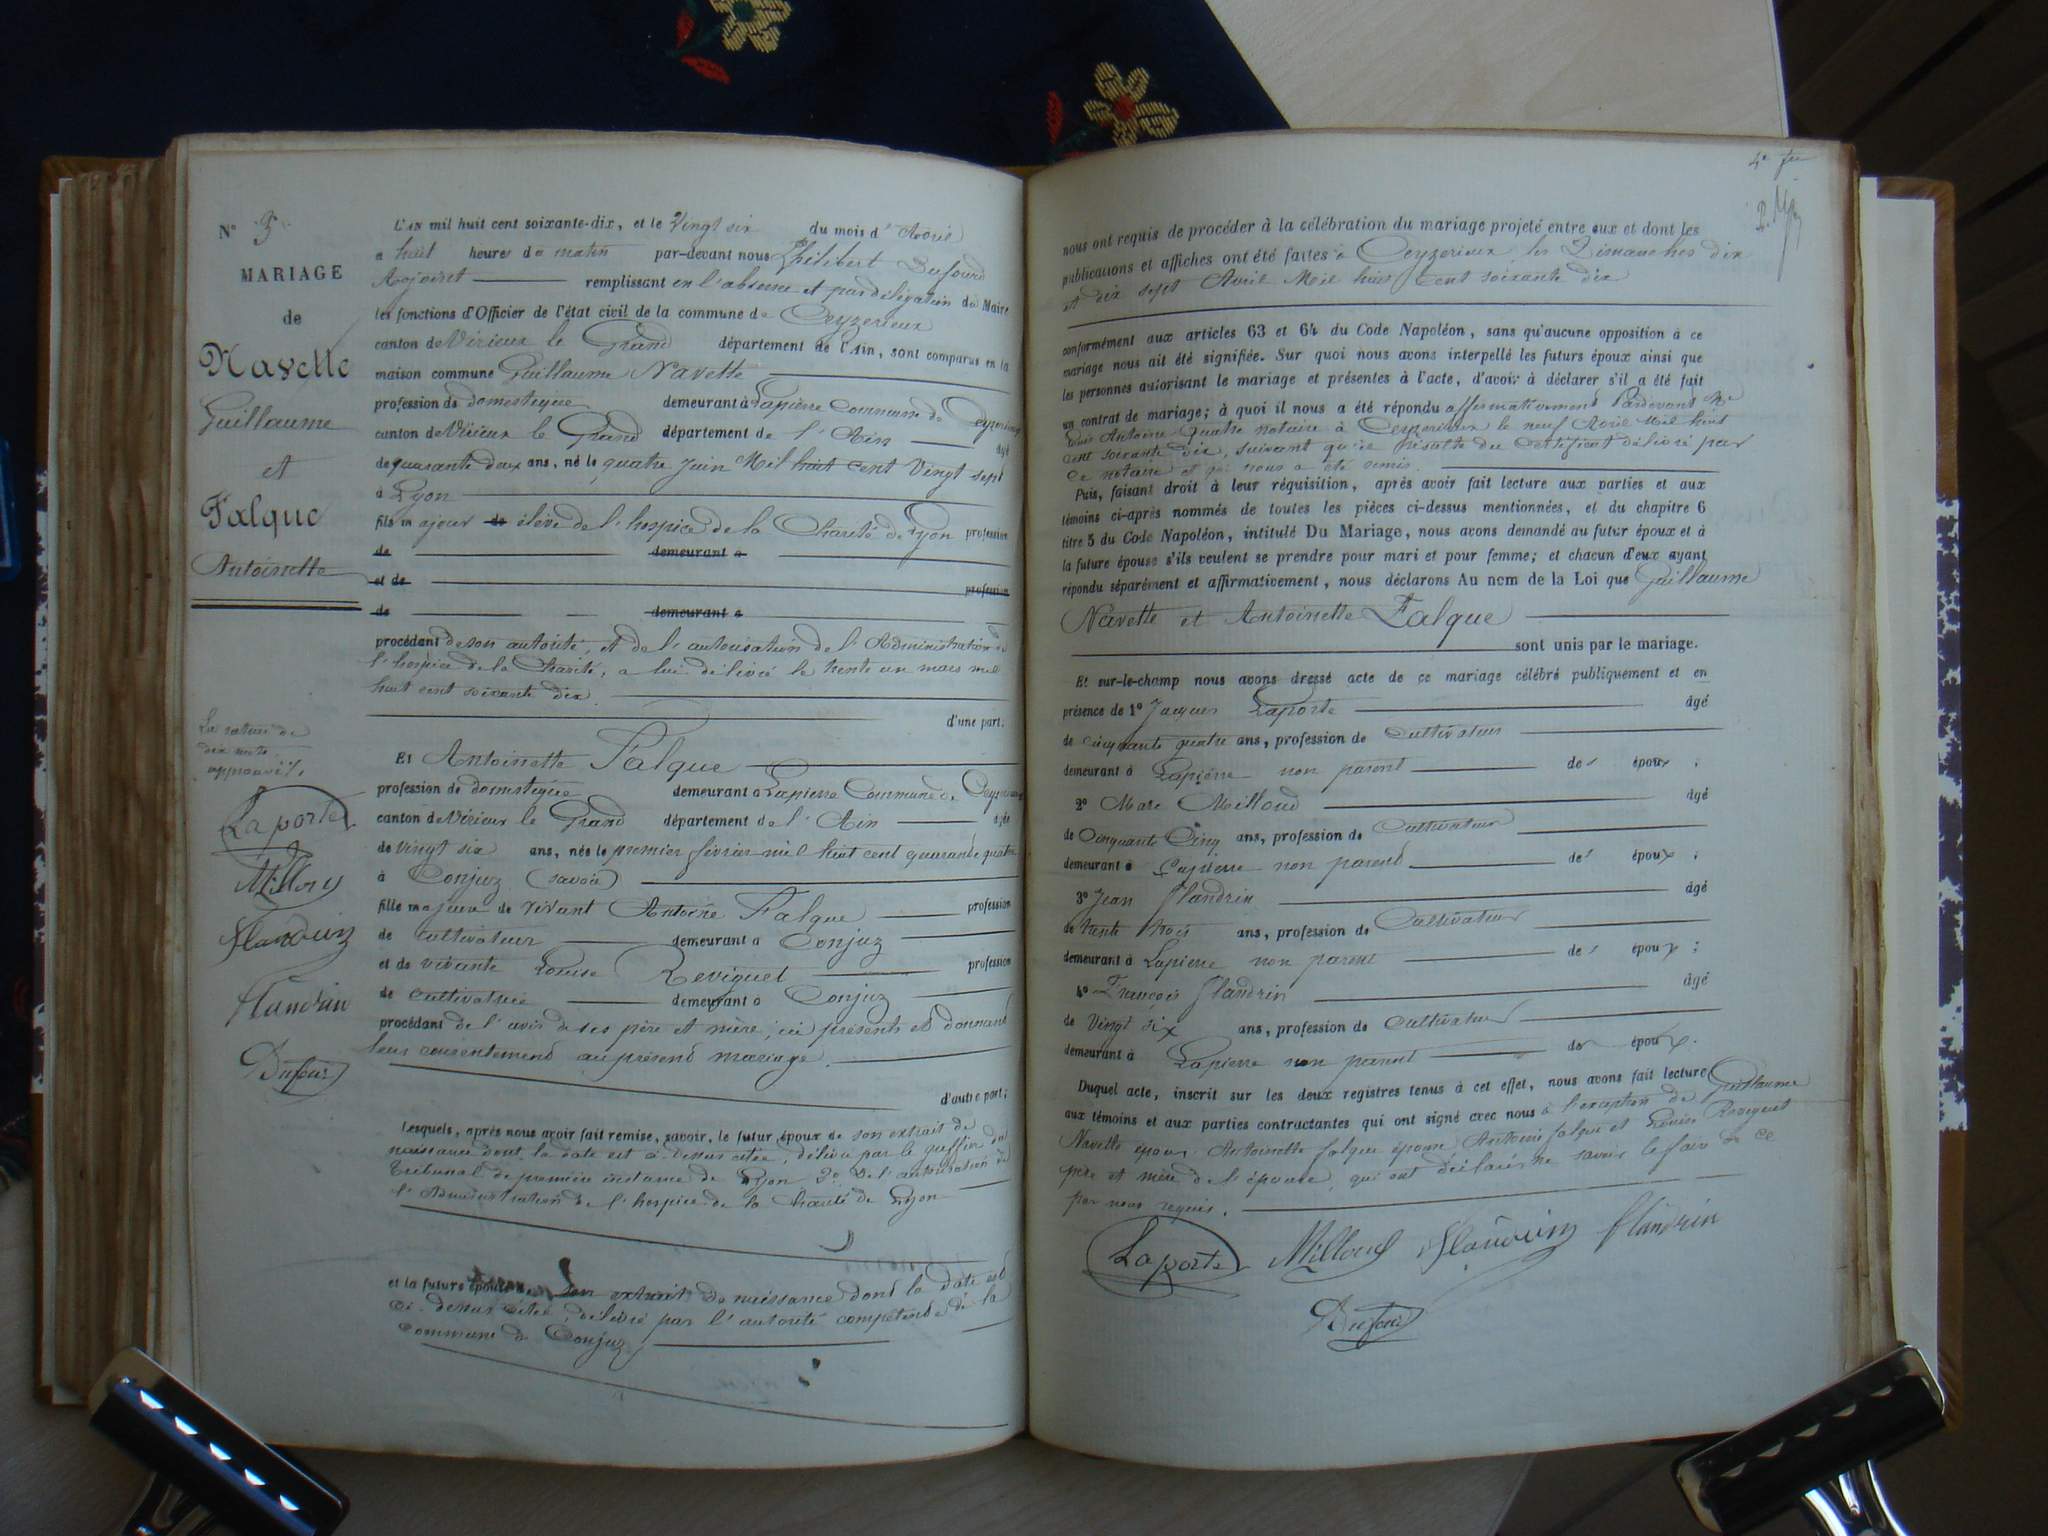 N° 3
MARIAGE
de
Navette
Guillaume
et
Falque
Antoinette
La rature de
dix mots
approuvé
Laporte
Milloud
Flandrin
Flandrin
Dufour
L'AN mil huit cent soixante-dix, et le Vingt six du mois d'Avril
a huit heures du matin par-devant nous Philibert Dufour
Adjoint remplissant en l'absence et par délégation du Maire
les fonctions d'Officier de l'état civil de la commune de Ceyzerieux
canton de Virieux le Grand département de l'Ain, sont comparus en la
maison commune Guillaume Navette
profession de domestique demeurant à Lapierre Commune de Ceyzerieux
canton de Virieux le Grand département de l'Ain âgé
de quarante deux ans, né le quatre Juin Mil huit cent Vingt sept
à Lyon
fils majeur de élève de l'hospice de la Charité de Lyon profession
de demeurant à
et de profession
de demeurant à
procédant de son autorité, et de l'autorisation de l'Administration de
l'hospice de la Charité, a lui délivré le trente un mars mil
huit cent soixante dix
d'une part.
Et Antoinette Falque
profession de domestique demeurant à Lapierre Commune de Ceyzerieux
canton de Virieux le Grand département de l'Ain âgée
de vingt six ans, née le premier février mil huit cent quarante quatre
à Conjux (savoie)
fille majeure de vivant Antoine Falque profession
de cultivateur demeurant à Conjux
et de vivante Louise Reviguet profession
de cultivatrice demeurant à Conjux
procédant de l'avis de ses père et mère, ici présents et donnant
leur consentement au présent mariage.
d'autre part;
Lesquels, après nous avoir fait remise, savoir, le futur époux de son extrait de
naissance dont la date est ci-dessus citée, délivré par le greffier du
tribunal de première instance de Lyon 2° de l'autorisation de
l'Administration de l'hospice de la Charité de Lyon
et la future épouse de son extrait de naissance dont la date est
ci-dessus citée, délivré par l'autorité compétente de la
commune de Conjux
4e fet
nous ont requis de procéder à la célébration du mariage projeté entre eux et dont les
publications et affiches ont été faites à Ceyzerieux, les Dimanches dix
et dix sept Avril Mil huit cent soixante dix
conformément aux articles 63 et 64 du Code Napoléon, sans qu'aucune opposition à ce
mariage nous ait été signifiée. Sur quoi nous avons interpellé les futurs époux ainsi que
les personnes autorisant le mariage et présentes à l'acte, d'avoir à déclarer s'il a été fait
un contrat de mariage; à quoi il nous a été répondu affirmativement Pardevant Me
Antoine Quatre notaire à Ceyzerieux le neuf Avril Mil huit
cent soixante dix, suivant qu'il résulte du certificat délivré par
ce notaire et qui nous a été remis.
Puis, faisant droit à leur réquisition, après avoir fait lecture aux parties et aux
témoins ci-après nommés de toutes les pièces ci-dessus mentionnées, et du chapitre 6
titre 5 du Code Napoléon, intitulé Du Mariage, nous avons demandé au futur époux et à
la future épouse s'ils veulent se prendre pour mari et pour femme; et chacun d'eux ayant
répondu séparément et affirmativement, nous déclarons Au nom de la Loi que Guillaume
Navette et Antoinette Falque
sont unis par le mariage.
Et sur-le-champ nous avons dressé acte de ce mariage célébré publiquement et en
présence de 1° Jacques Laporte âgé
de cinquante quatre ans, profession de Cultivateur
demeurant à Lapierre non parent des époux;
2° Marc Milloud âgé
de Cinquante Cinq ans, profession de Cultivateur
demeurant à Lapierre non parent des époux;
3° Jean Flandrin âgé
de trente trois ans, profession de Cultivateur
demeurant à Lapierre non parent des époux;
4° François Flandrin âgé
de Vingt six ans, profession de Cultivateur
demeurant à Lapierre non parent des époux.
Duquel acte, inscrit sur les deux registres tenus à cet effet, nous avons fait lecture
aux témoins et aux parties contractantes qui ont signé avec nous à l'exception de Guillaume
Navette époux Antoinette falque épouse, Antoine falque et Louise Reviguet
père et mère de l'épouse, qui ont déclaré ne savoir le faire de ce
par nous requis.
Laporte Milloud Flandrin Flandrin
Dufour